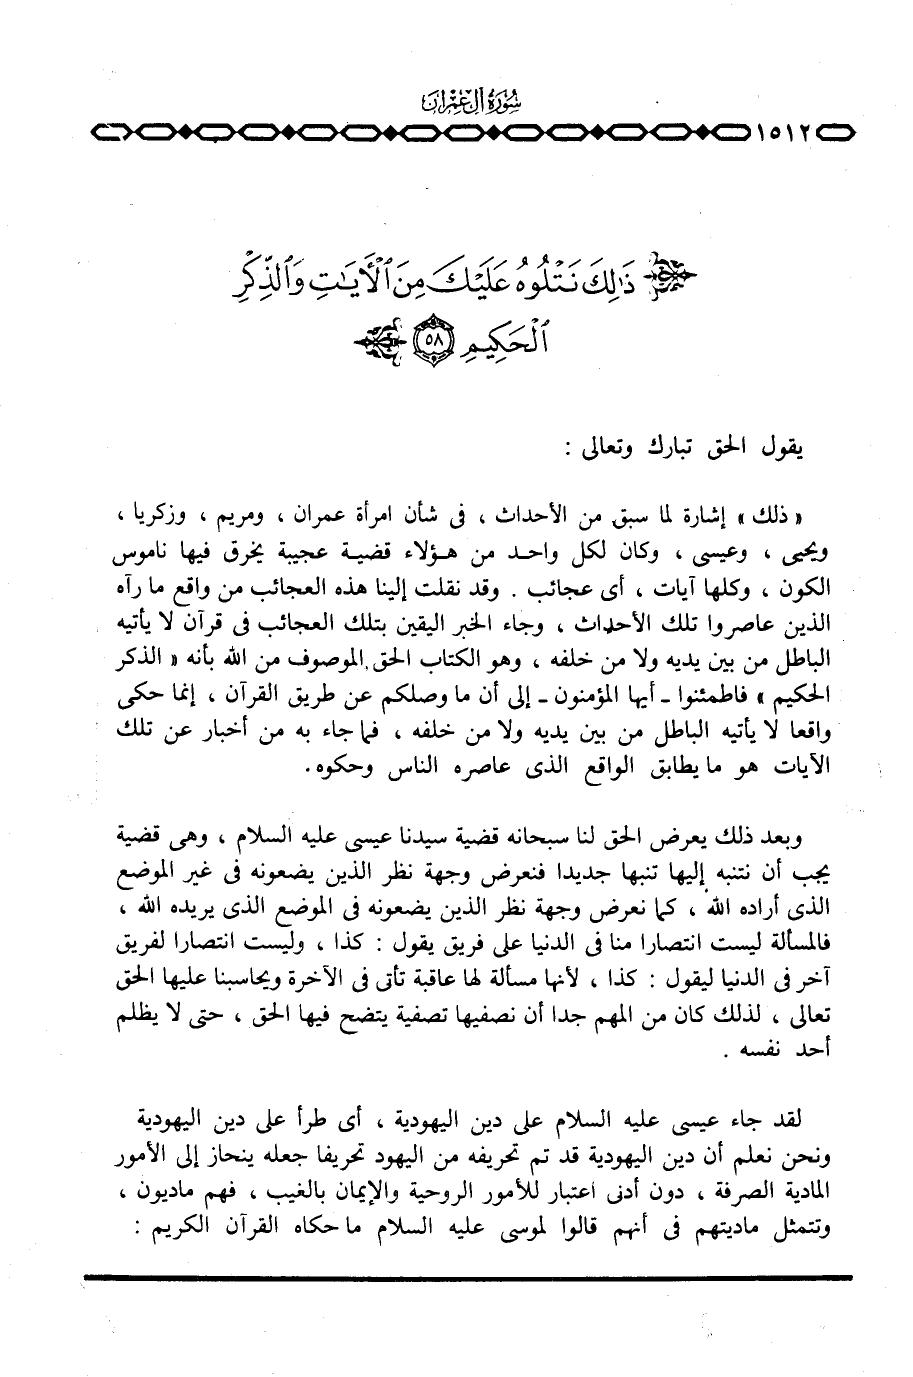 سُورَةُ آلِ عِمْرَانَ
١٥١٢
ذَٰلِكَ نَتْلُوهُ عَلَيْكَ مِنَ ٱلْأَيَٰتِ وَٱلذِّكْرِ
ٱلْحَكِيمِ ٥٨
يقول الحق تبارك وتعالى :
« ذلك » إشارة لما سبق من الأحداث ، فى شأن امرأة عمران ، ومريم ، وزكريا ،
ويحيى ، وعيسى ، وكان لكل واحد من هؤلاء قضية عجيبة يخرق فيها ناموس
الكون ، وكلها آيات ، أى عجائب . وقد نقلت إلينا هذه العجائب من واقع ما رآه
الذين عاصروا تلك الأحداث ، وجاء الخبر اليقين بتلك العجائب فى قرآن لا يأتيه
الباطل من بين يديه ولا من خلفه ، وهو الكتاب الحق الموصوف من الله بأنه « الذكر
الحكيم » فاطمئنوا ـ أيها المؤمنون ـ إلى أن ما وصلكم عن طريق القرآن ، إنما حكى
واقعا لا يأتيه الباطل من بين يديه ولا من خلفه ، فما جاء به من أخبار عن تلك
الآيات هو ما يطابق الواقع الذى عاصره الناس وحكوه.
وبعد ذلك يعرض الحق لنا سبحانه قضية سيدنا عيسى عليه السلام ، وهى قضية
يجب أن نتنبه إليها تنبها جديدا فنعرض وجهة نظر الذين يضعونه فى غير الموضع
الذى أراده الله ، كما نعرض وجهة نظر الذين يضعونه فى الموضع الذى يريده الله ،
فالمسألة ليست انتصارا منا فى الدنيا على فريق يقول : كذا ، وليست انتصارا لفريق
آخر فى الدنيا ليقول : كذا ، لأنها مسألة لها عاقبة تأتى فى الآخرة ويحاسبنا عليها الحق
تعالى ، لذلك كان من المهم جدا أن نصفيها تصفية يتضح فيها الحق ، حتى لا يظلم
أحد نفسه .
لقد جاء عيسى عليه السلام على دين اليهودية ، أى طرأ على دين اليهودية
ونحن نعلم أن دين اليهودية قد تم تحريفه من اليهود تحريفا جعله ينحاز إلى الأمور
المادية الصرفة ، دون أدنى اعتبار للأمور الروحية والإيمان بالغيب ، فهم ماديون ،
وتتمثل ماديتهم فى أنهم قالوا لموسى عليه السلام ما حكاه القرآن الكريم :